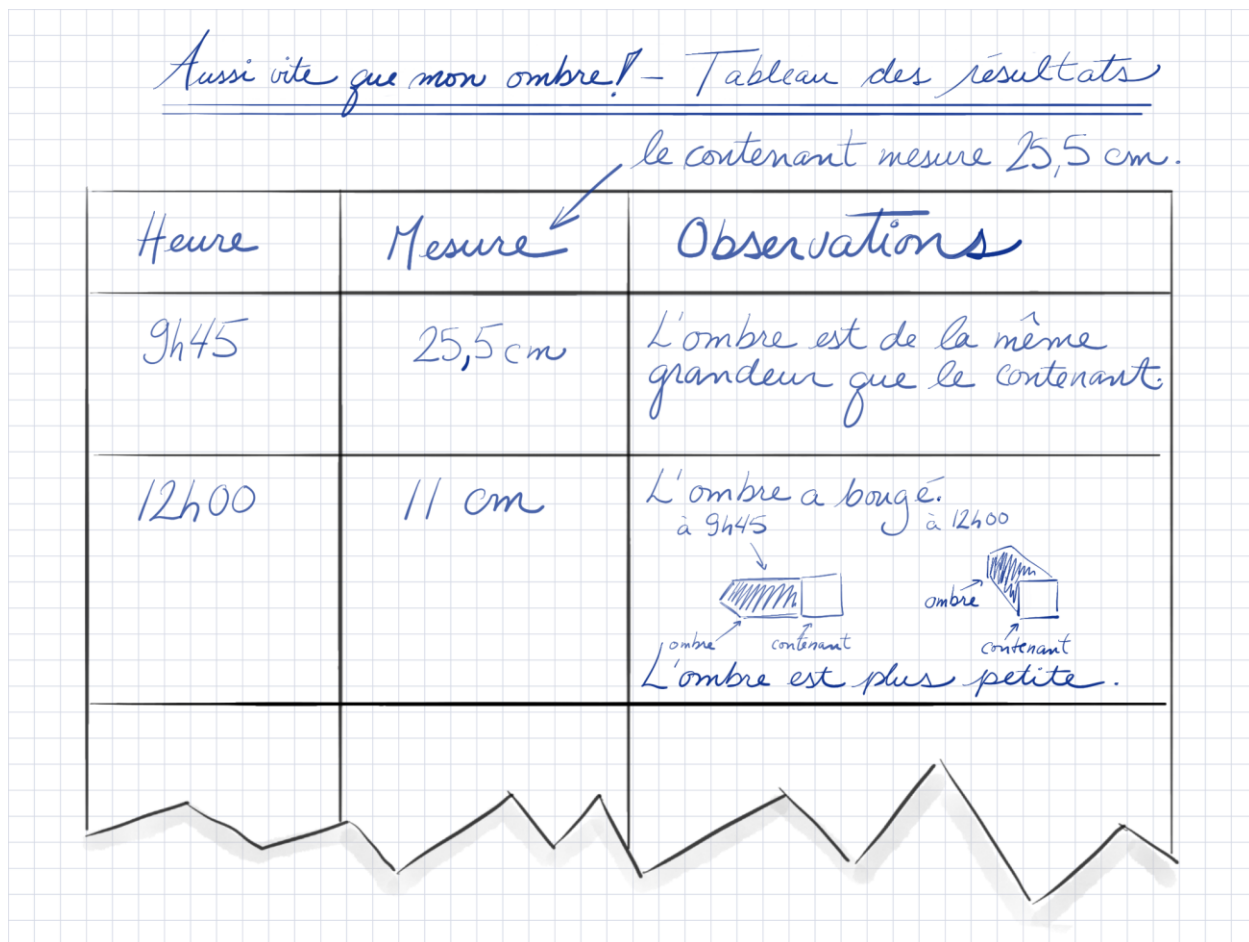 Aussi vite que mon ombre! - Tableau des résultats
le contenant mesure 25,5 cm.
Heure
Mesure
Observations
9h45
25,5 cm
L'ombre est de la même
grandeur que le contenant.
12h00
11 cm
L'ombre a bougé.
à 9h45
à 12h00
ombre
contenant
ombre
contenant
L'ombre est plus petite.